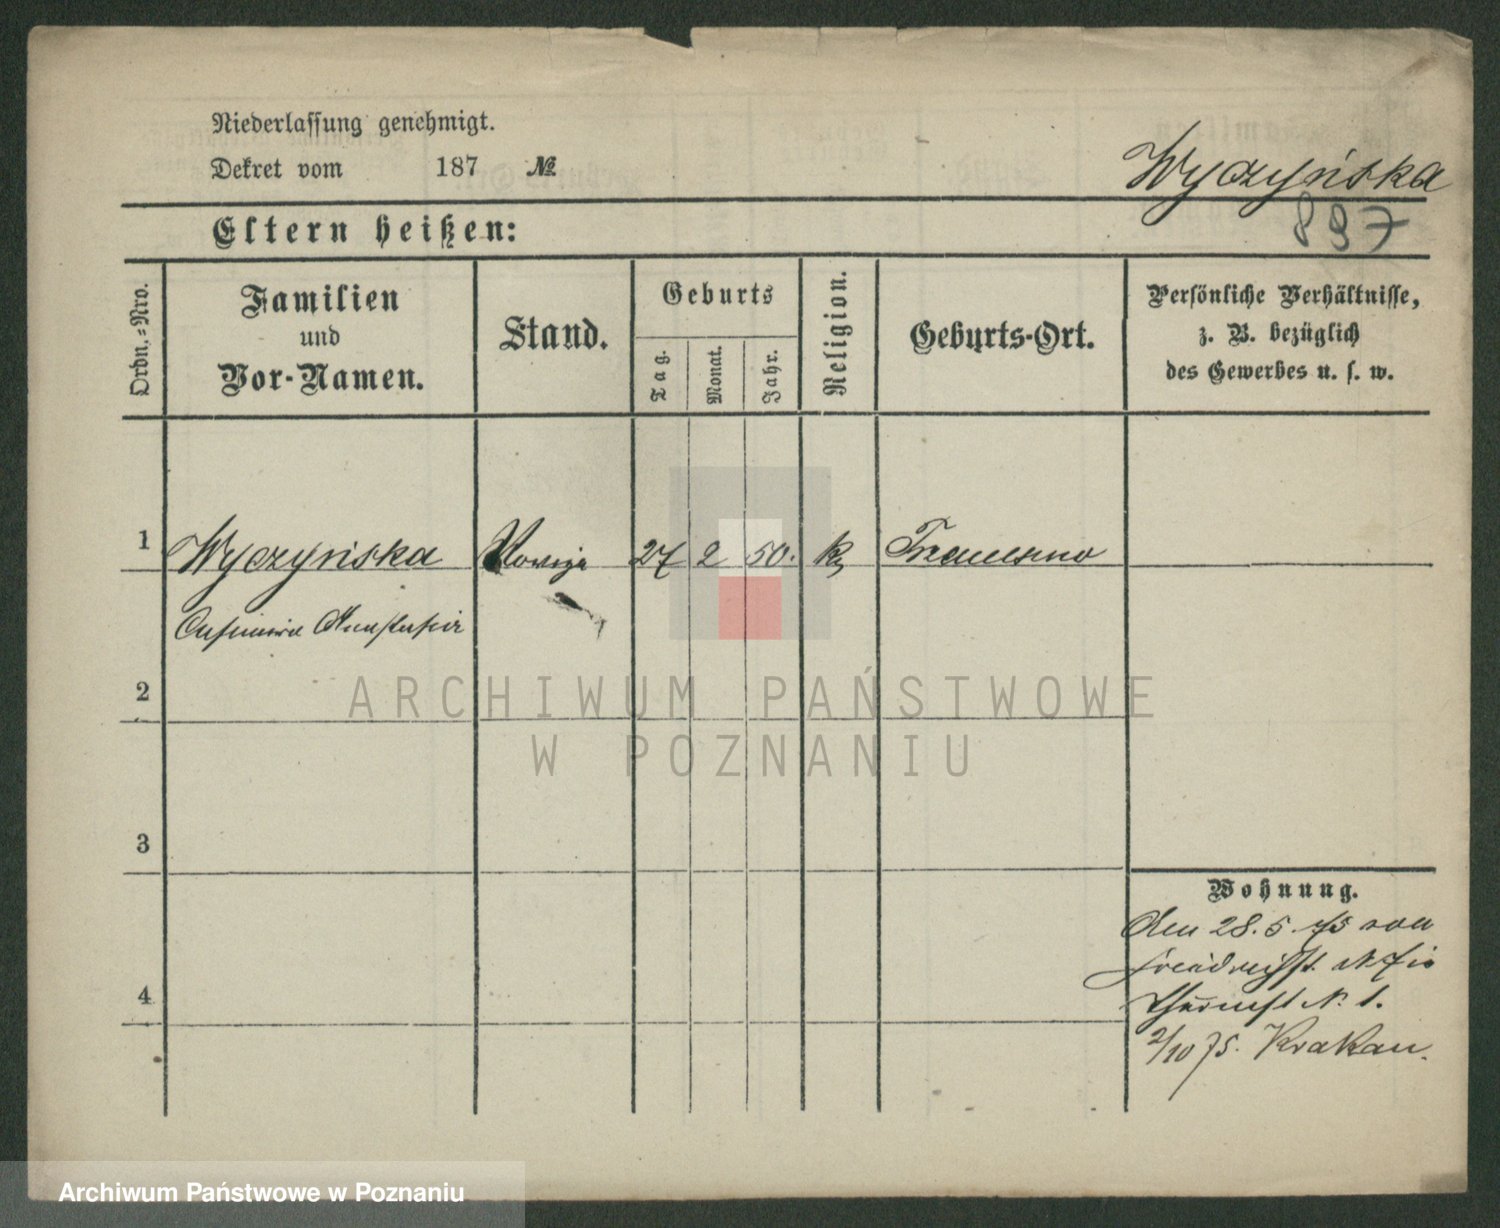 Niederlassung genehmigt.
Dekret vom 187 №
Wyczyńska
897
Eltern heißen:
Ordn.-Nro.
Familien
und
Vor-Namen.
Stand.
Geburts
Tag.
Monat.
Jahr.
Religion.
Geburts-Ort.
Persönliche Verhältnisse,
z. B. bezüglich
des Gewerbes u. s. w.
1 Wyczyńska 27 2 50. k Trzemeszno
Casimira Anastasia
2
ARCHIWUM PAŃSTWOWE
W POZNANIU
3
Wohnung.
Den 28.5.75 von
Friedrichst. №
4
№ 1.
2/10 75. Krakau.
Archiwum Państwowe w Poznaniu